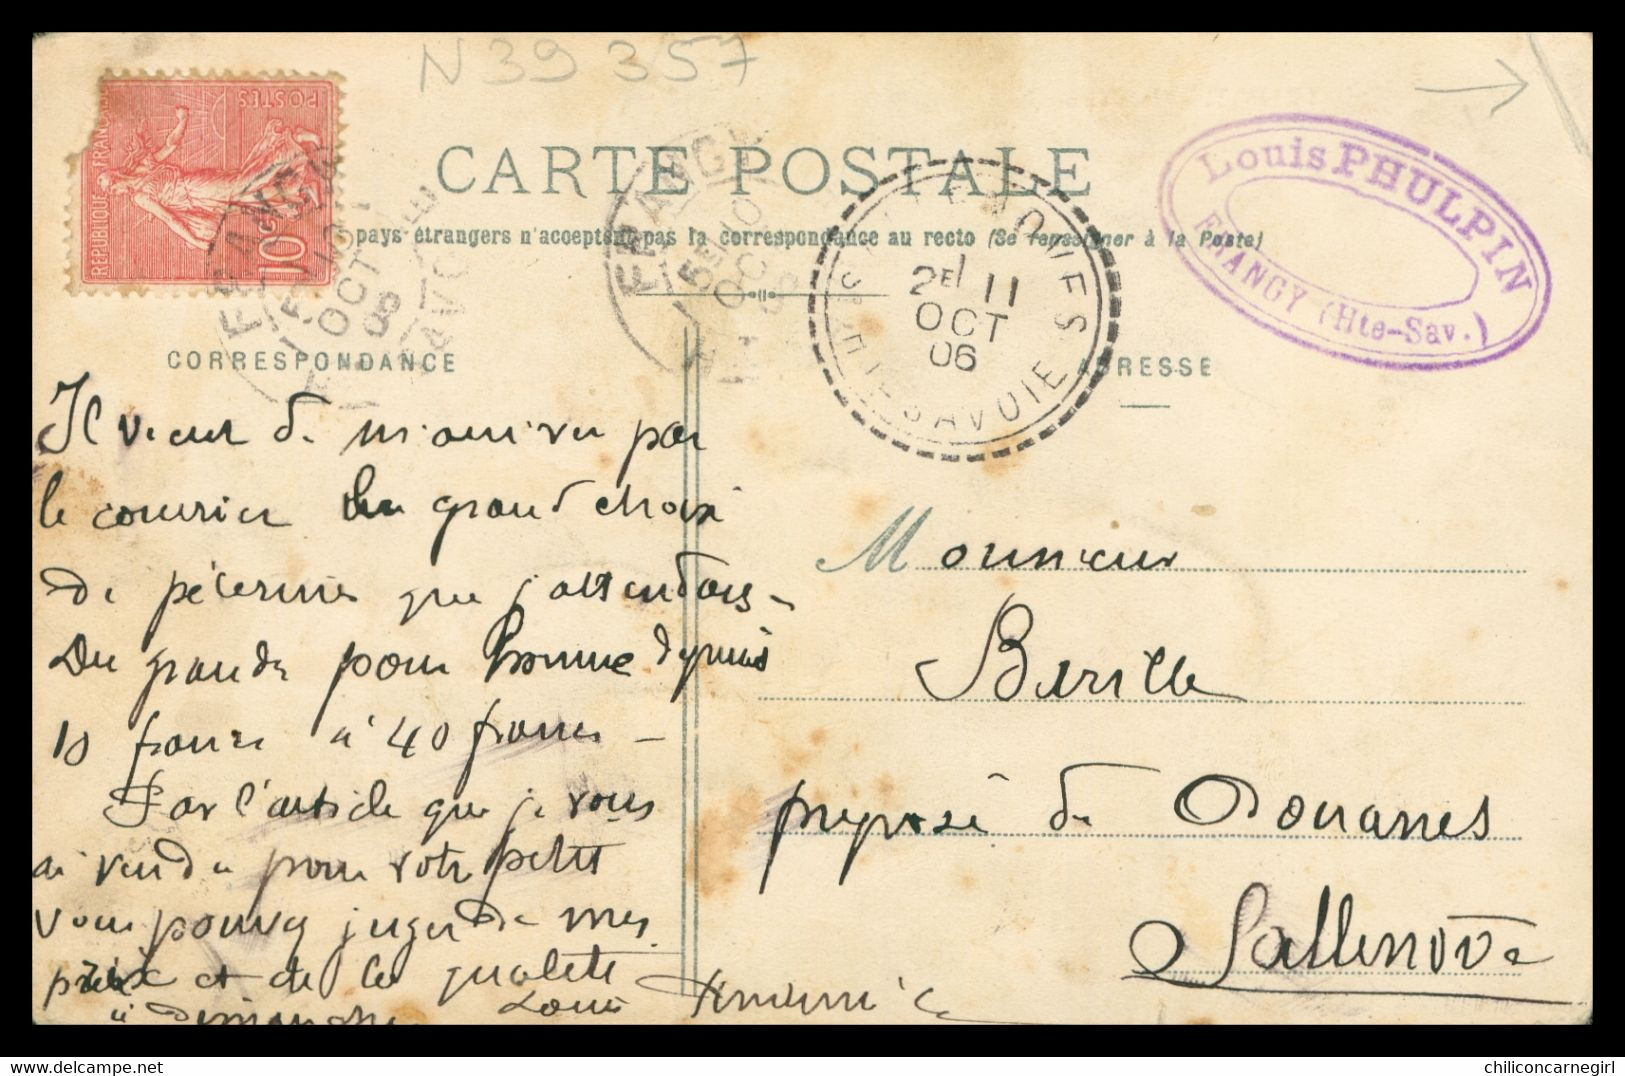 N 39 357
CARTE POSTALE
pays étrangers n'acceptent pas la correspondance au recto (Se renseigner à la Poste)
REPUBLIQUE FRANÇAISE
POSTES
10c
FRANGY
OCT
06
FRANGY
5E 10
OCT
2E 11
OCT
06
HTE SAVOIE
Louis PHULPIN
FRANGY (Hte-Sav.)
CORRESPONDANCE
ADRESSE
Il vient de m'arriver par
le courrier un grand choix
de pélerines que j'attendais -
Du grande pour homme depuis
10 francs à 40 francs -
Par l'article que je vous
ai vendu pour votre petit
vous pouvez juger de mes
prix et de la qualité
à dimanche
Louis
Monsieur
Birille
préposé de Douanes
Sallenove
chiliconcarnegirl